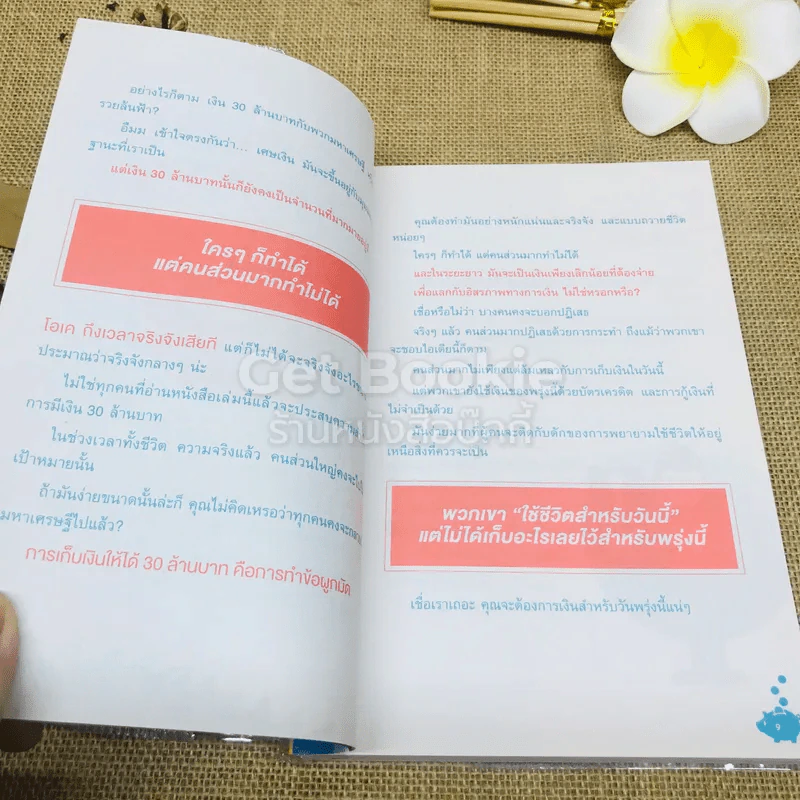 อย่างไรก็ตาม เงิน 30 ล้านบาทกับพวกมหาเศรษฐี
รวยล้นฟ้า?
อืมม เข้าใจตรงกันว่า... เศษเงิน มันจะขึ้นอยู่กับ
ฐานะที่เราเป็น
แต่เงิน 30 ล้านบาทนั้นก็ยังคงเป็นจำนวนที่มากมาย
ใครๆ ก็ทำได้
แต่คนส่วนมากทำไม่ได้
โอเค ถึงเวลาจริงจังเสียที แต่ก็ไม่ได้จะจริงจังอะไร
ประมาณว่าจริงจังกลางๆ น่ะ
ไม่ใช่ทุกคนที่อ่านหนังสือเล่มนี้แล้วจะประสบความ
การมีเงิน 30 ล้านบาท
ในช่วงเวลาทั้งชีวิต ความจริงแล้ว คนส่วนใหญ่คงจะ
เป้าหมายนั้น
ถ้ามันง่ายขนาดนั้นล่ะก็ คุณไม่คิดเหรอว่าทุกคนคงจะ
มหาเศรษฐีไปแล้ว?
การเก็บเงินให้ได้ 30 ล้านบาท คือการทำข้อผูกมัด
คุณต้องทำมันอย่างหนักแน่นและจริงจัง และแบบถวายชีวิต
หน่อยๆ
ใครๆ ก็ทำได้ แต่คนส่วนมากทำไม่ได้
และในระยะยาว มันจะเป็นเงินเพียงเล็กน้อยที่ต้องจ่าย
เพื่อแลกกับอิสรภาพทางการเงิน ไม่ใช่หรอกหรือ?
เชื่อหรือไม่ว่า บางคนคงจะบอกปฏิเสธ
จริงๆ แล้ว คนส่วนมากปฏิเสธด้วยการกระทำ ถึงแม้ว่าพวกเขา
จะชอบไอเดียนี้ก็ตาม
คนส่วนมากไม่เพียงแต่ล้มเหลวกับการเก็บเงินในวันนี้
แต่พวกเขายังใช้เงินของพรุ่งนี้ด้วยบัตรเครดิต และการกู้เงินที่
ไม่จำเป็นด้วย
มันง่ายมากที่ทุกคนจะติดกับดักของการพยายามใช้ชีวิตให้อยู่
เหนือสิ่งที่ควรจะเป็น
พวกเขา "ใช้ชีวิตสำหรับวันนี้"
แต่ไม่ได้เก็บอะไรเลยไว้สำหรับพรุ่งนี้
เชื่อเราเถอะ คุณจะต้องการเงินสำหรับวันพรุ่งนี้แน่ๆ
9
Get Bookie
ร้านหนังสือบุ๊คกี้